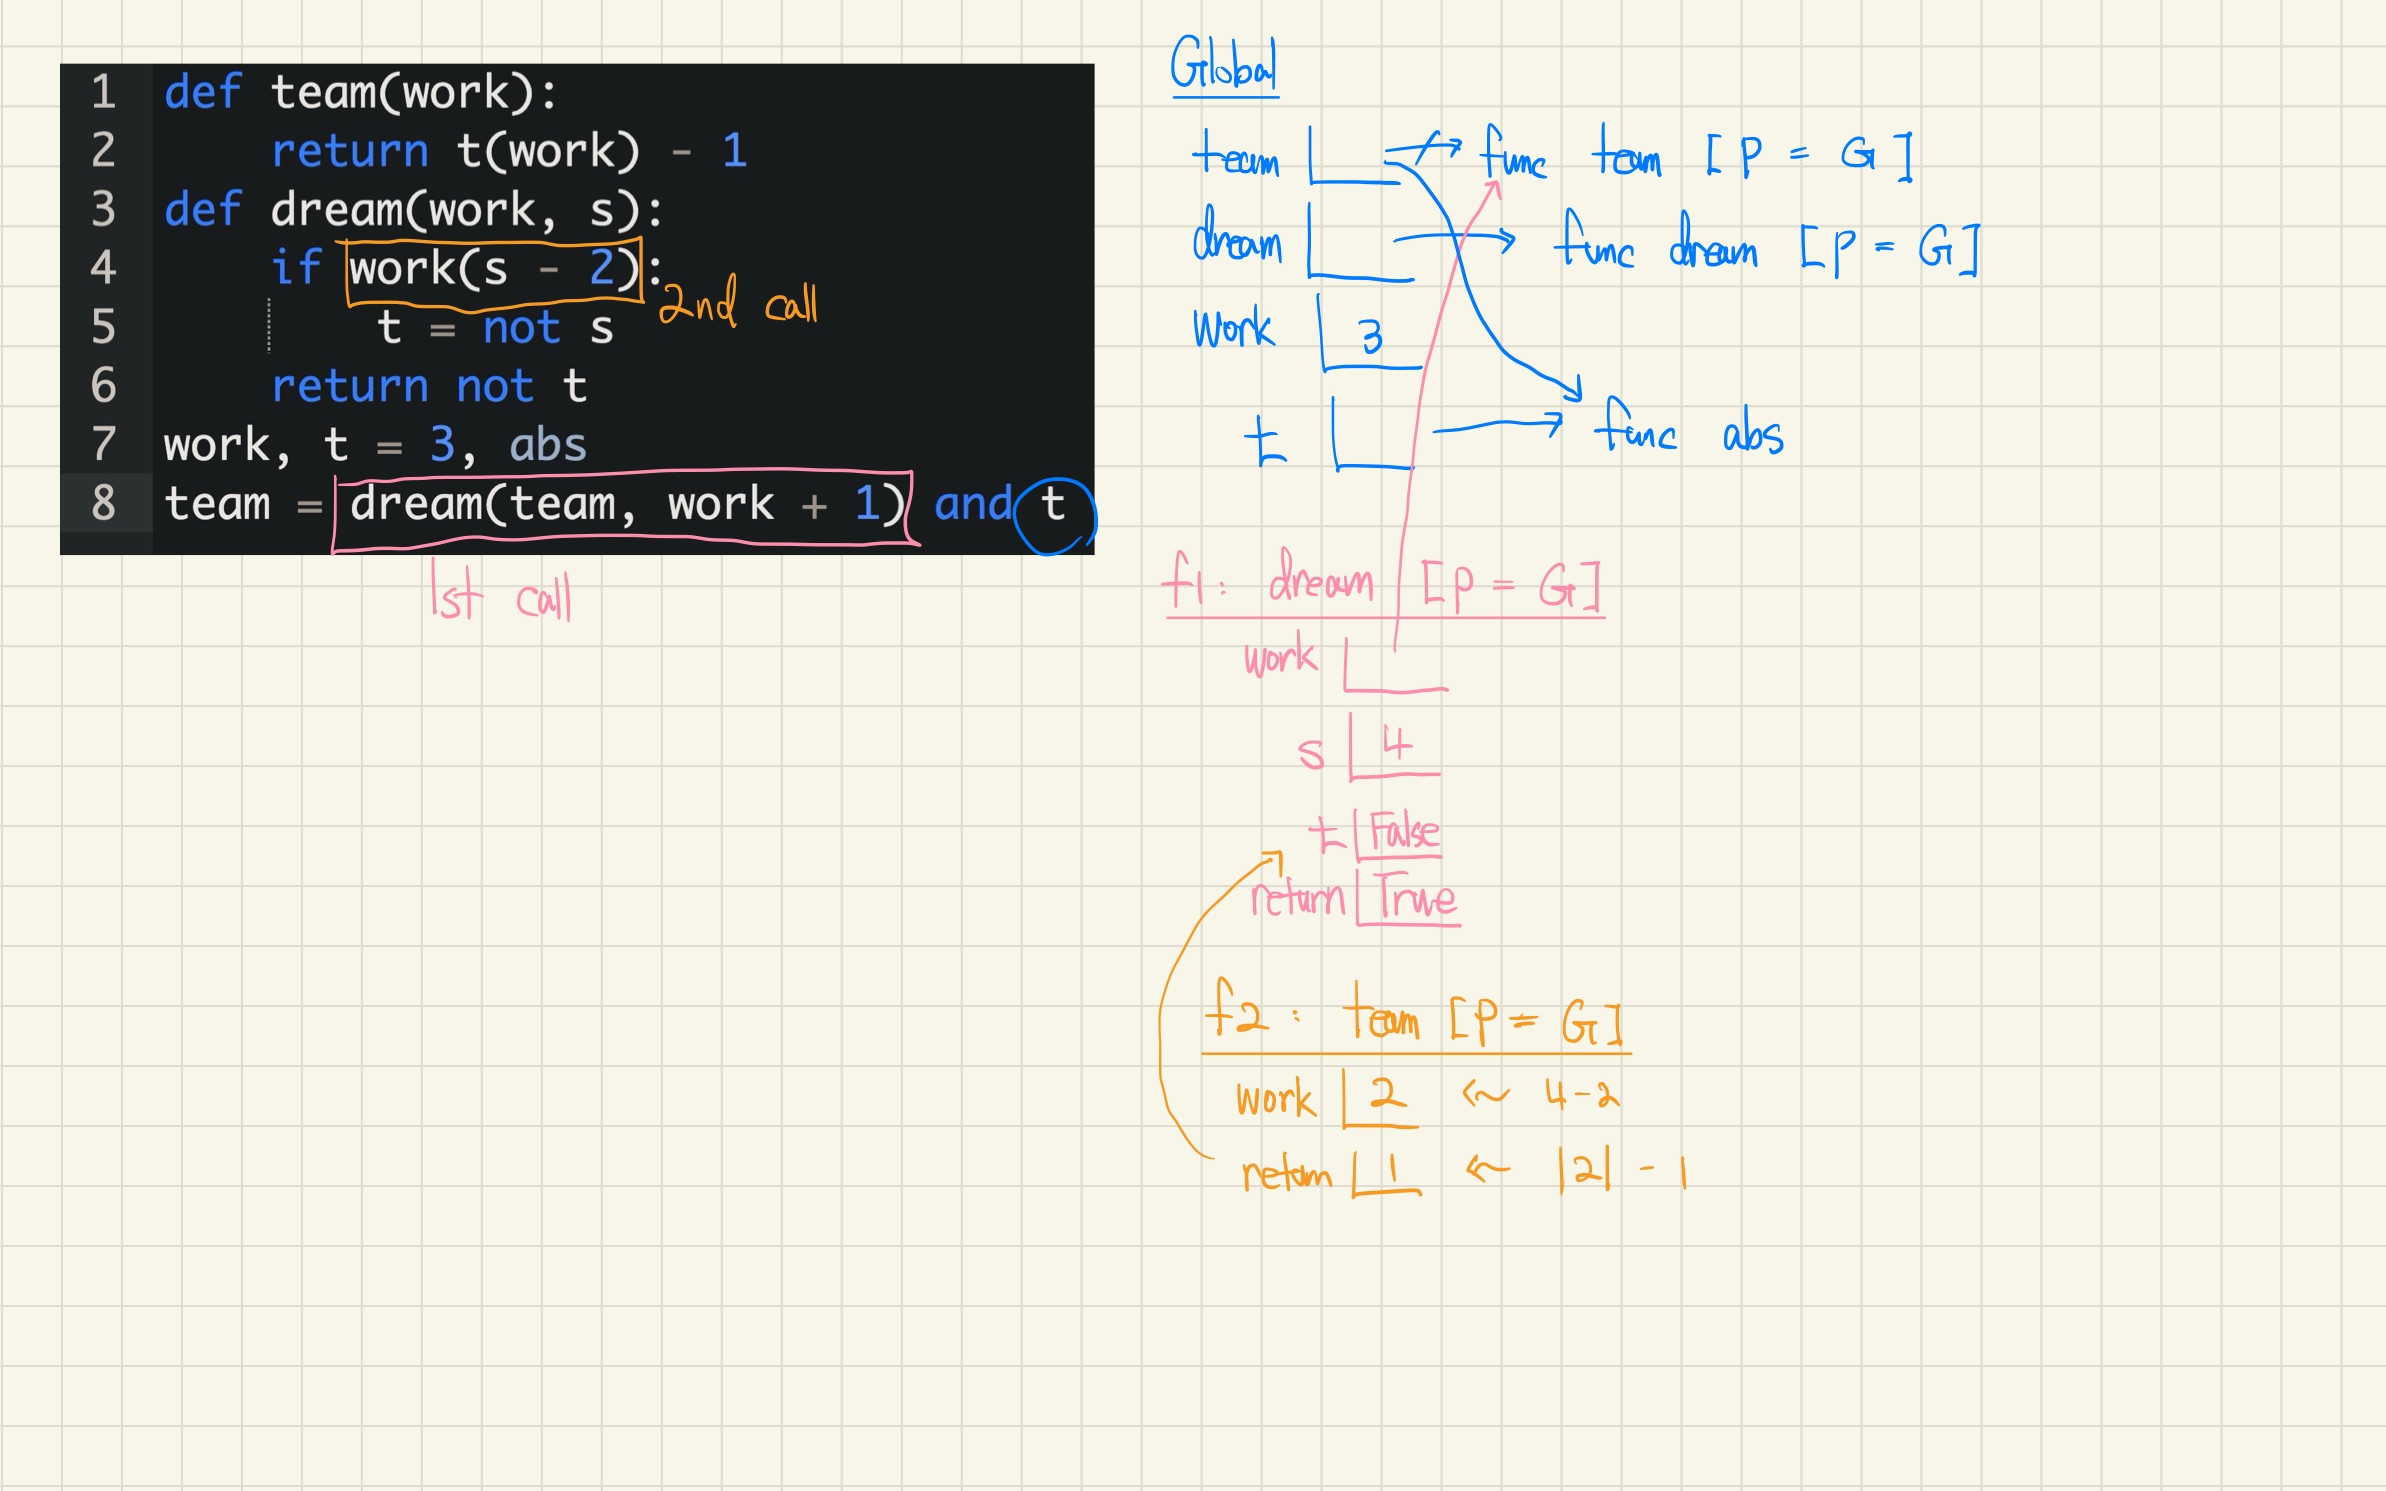 1 def team(work):
2 return t(work) - 1
3 def dream(work, s):
4 if work(s - 2):
2nd call
5 t = not s
6 return not t
7 work, t = 3, abs
8 team = dream(team, work + 1) and t
1st call
Global
team func team [P = G]
dream func dream [P = G]
work 3
t func abs
f1: dream [P = G]
work
s 4
t False
return True
f2: team [P = G]
work 2 4-2
return 1 |2| - 1